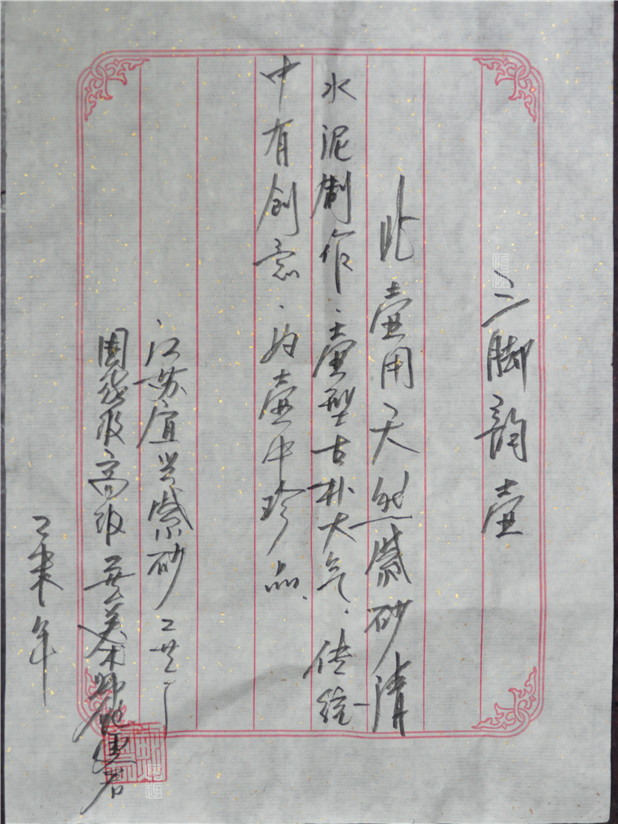 三脚韵壶
此壶用天然紫砂清
水泥制作、壶型古朴大气、传统
中有创意、为壶中珍品.
江苏宜兴紫砂工艺厂
国家级高级工艺美术师
乙未年